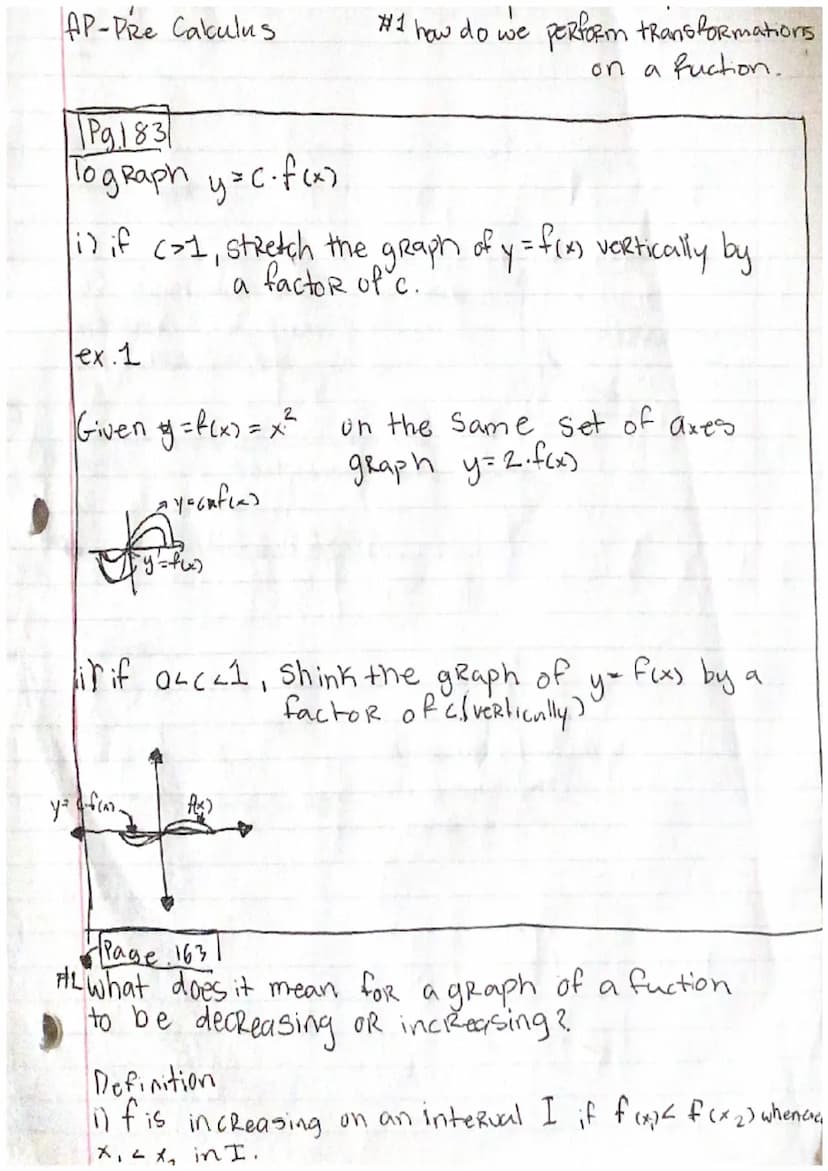 AP-Pre Calculus
#1 how do we perform transformations
on a fuction.
Pg 183
To graph y = c·f(x)
i) if c>1, stretch the graph of y = f(x) vertically by
a factor of c.
ex. 1
Given y = f(x) = x² on the same set of axes
graph y = 2·f(x)
y = f(x)
ii) if 0<c<1, shink the graph of y = f(x) by a
factor of c (vertically)
f(x)
Page 163
What does it mean for a graph of a fuction
to be decreasing or increasing?
Definition
i) f is increasing on an interval I if f(x₁) < f(x₂)
x₁ < x₂ in I.